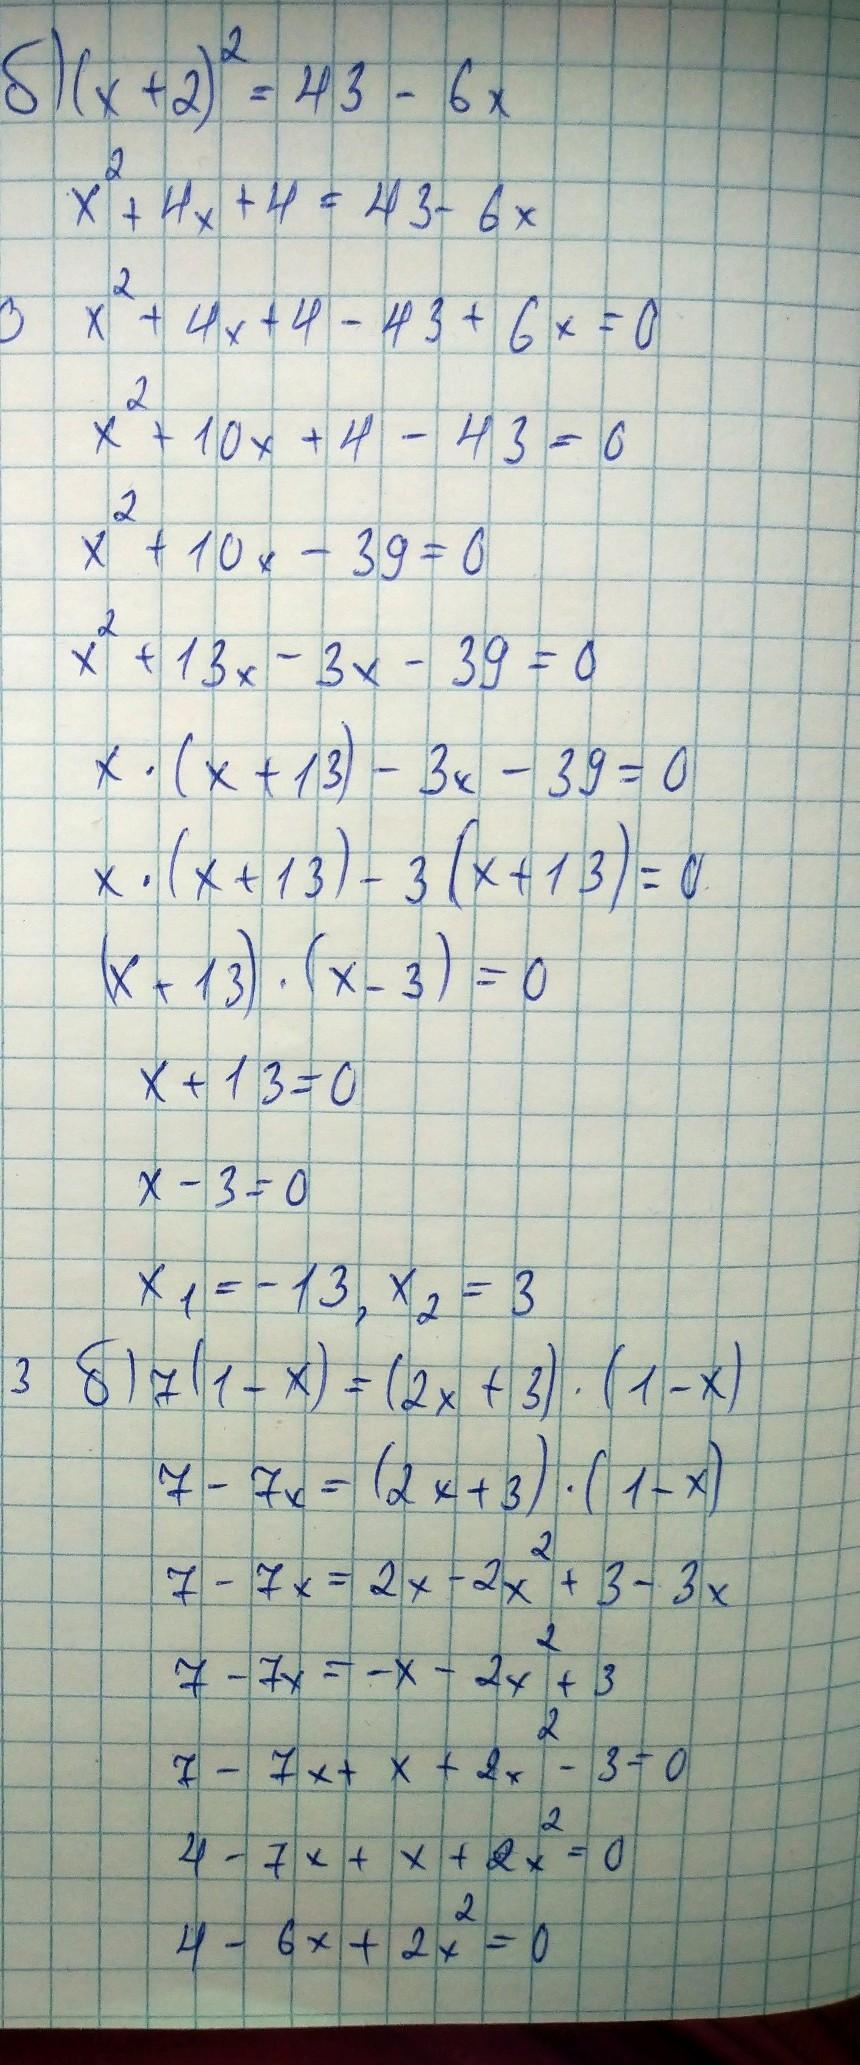 б) (x+2)² = 43 - 6x
x² + 4x + 4 = 43 - 6x
x² + 4x + 4 - 43 + 6x = 0
x² + 10x + 4 - 43 = 0
x² + 10x - 39 = 0
x² + 13x - 3x - 39 = 0
x · (x + 13) - 3x - 39 = 0
x · (x + 13) - 3 (x + 13) = 0
(x + 13) · (x - 3) = 0
x + 13 = 0
x - 3 = 0
x₁ = -13, x₂ = 3
3 б) 7(1 - x) = (2x + 3) · (1 - x)
7 - 7x = (2x + 3) · (1 - x)
7 - 7x = 2x - 2x² + 3 - 3x
7 - 7x = -x - 2x² + 3
7 - 7x + x + 2x² - 3 = 0
4 - 7x + x + 2x² = 0
4 - 6x + 2x² = 0